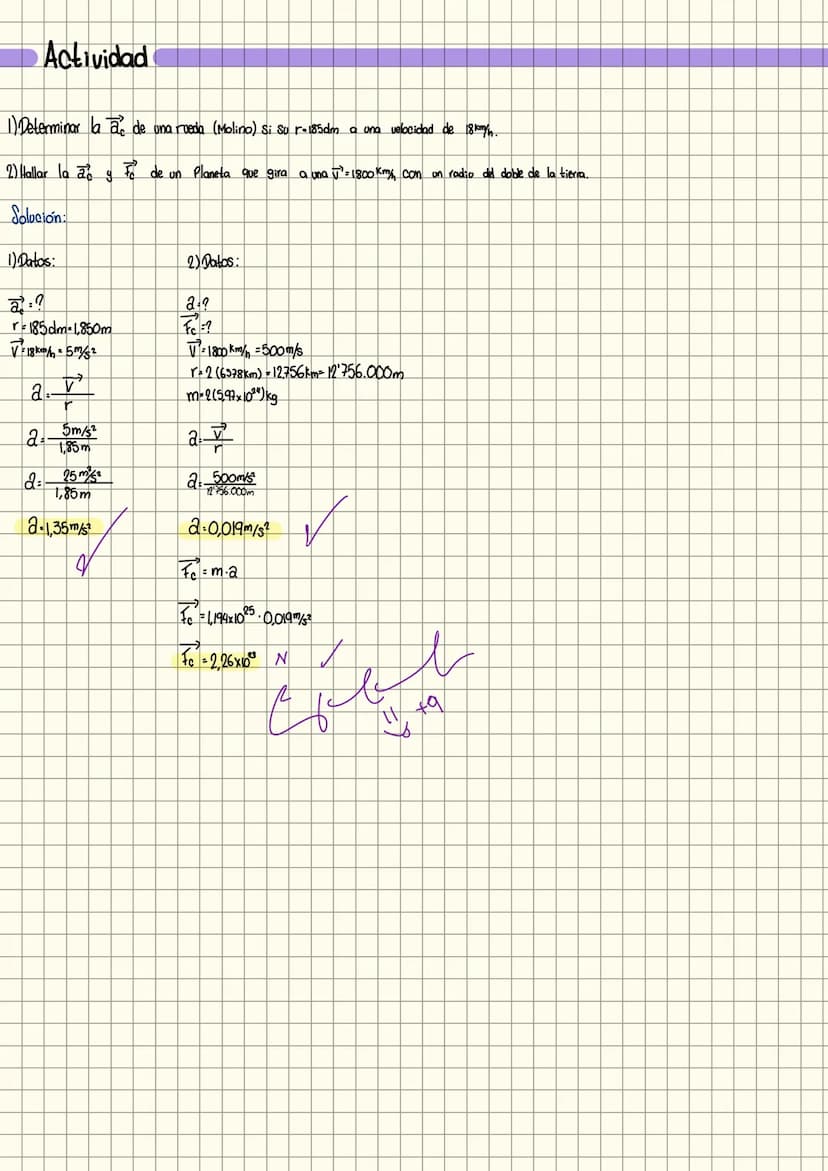 Actividad
1) Determinar la a⃗c de una rueda (Molino) si su r=185dm a una velocidad de 18km/h.
2) Hallar la a⃗c y F⃗c de un Planeta que gira a una V⃗=1800 Km/h con un radio del doble de la tierra.
Solución:
1) Datos:
a⃗c=?
r=185dm=1,850m
V⃗=18km/h=5m/s²
a=V⃗/r
a=5m/s²/1,85m
a=25m²/s²/1,85m
a=1,35m/s²
2) Datos:
a=?
F⃗c=?
V⃗=1800 Km/h=500m/s
r=2(6378km)=12,756km=12'756.000m
m=2(5,97x10²⁴)kg
a=V⃗/r
a=500m/s²/12'756.000m
a=0,019m/s²
F⃗c=m·a
F⃗c=1,194x10²⁵·0,019m/s²
F⃗c=2,26x10²³ N
+9